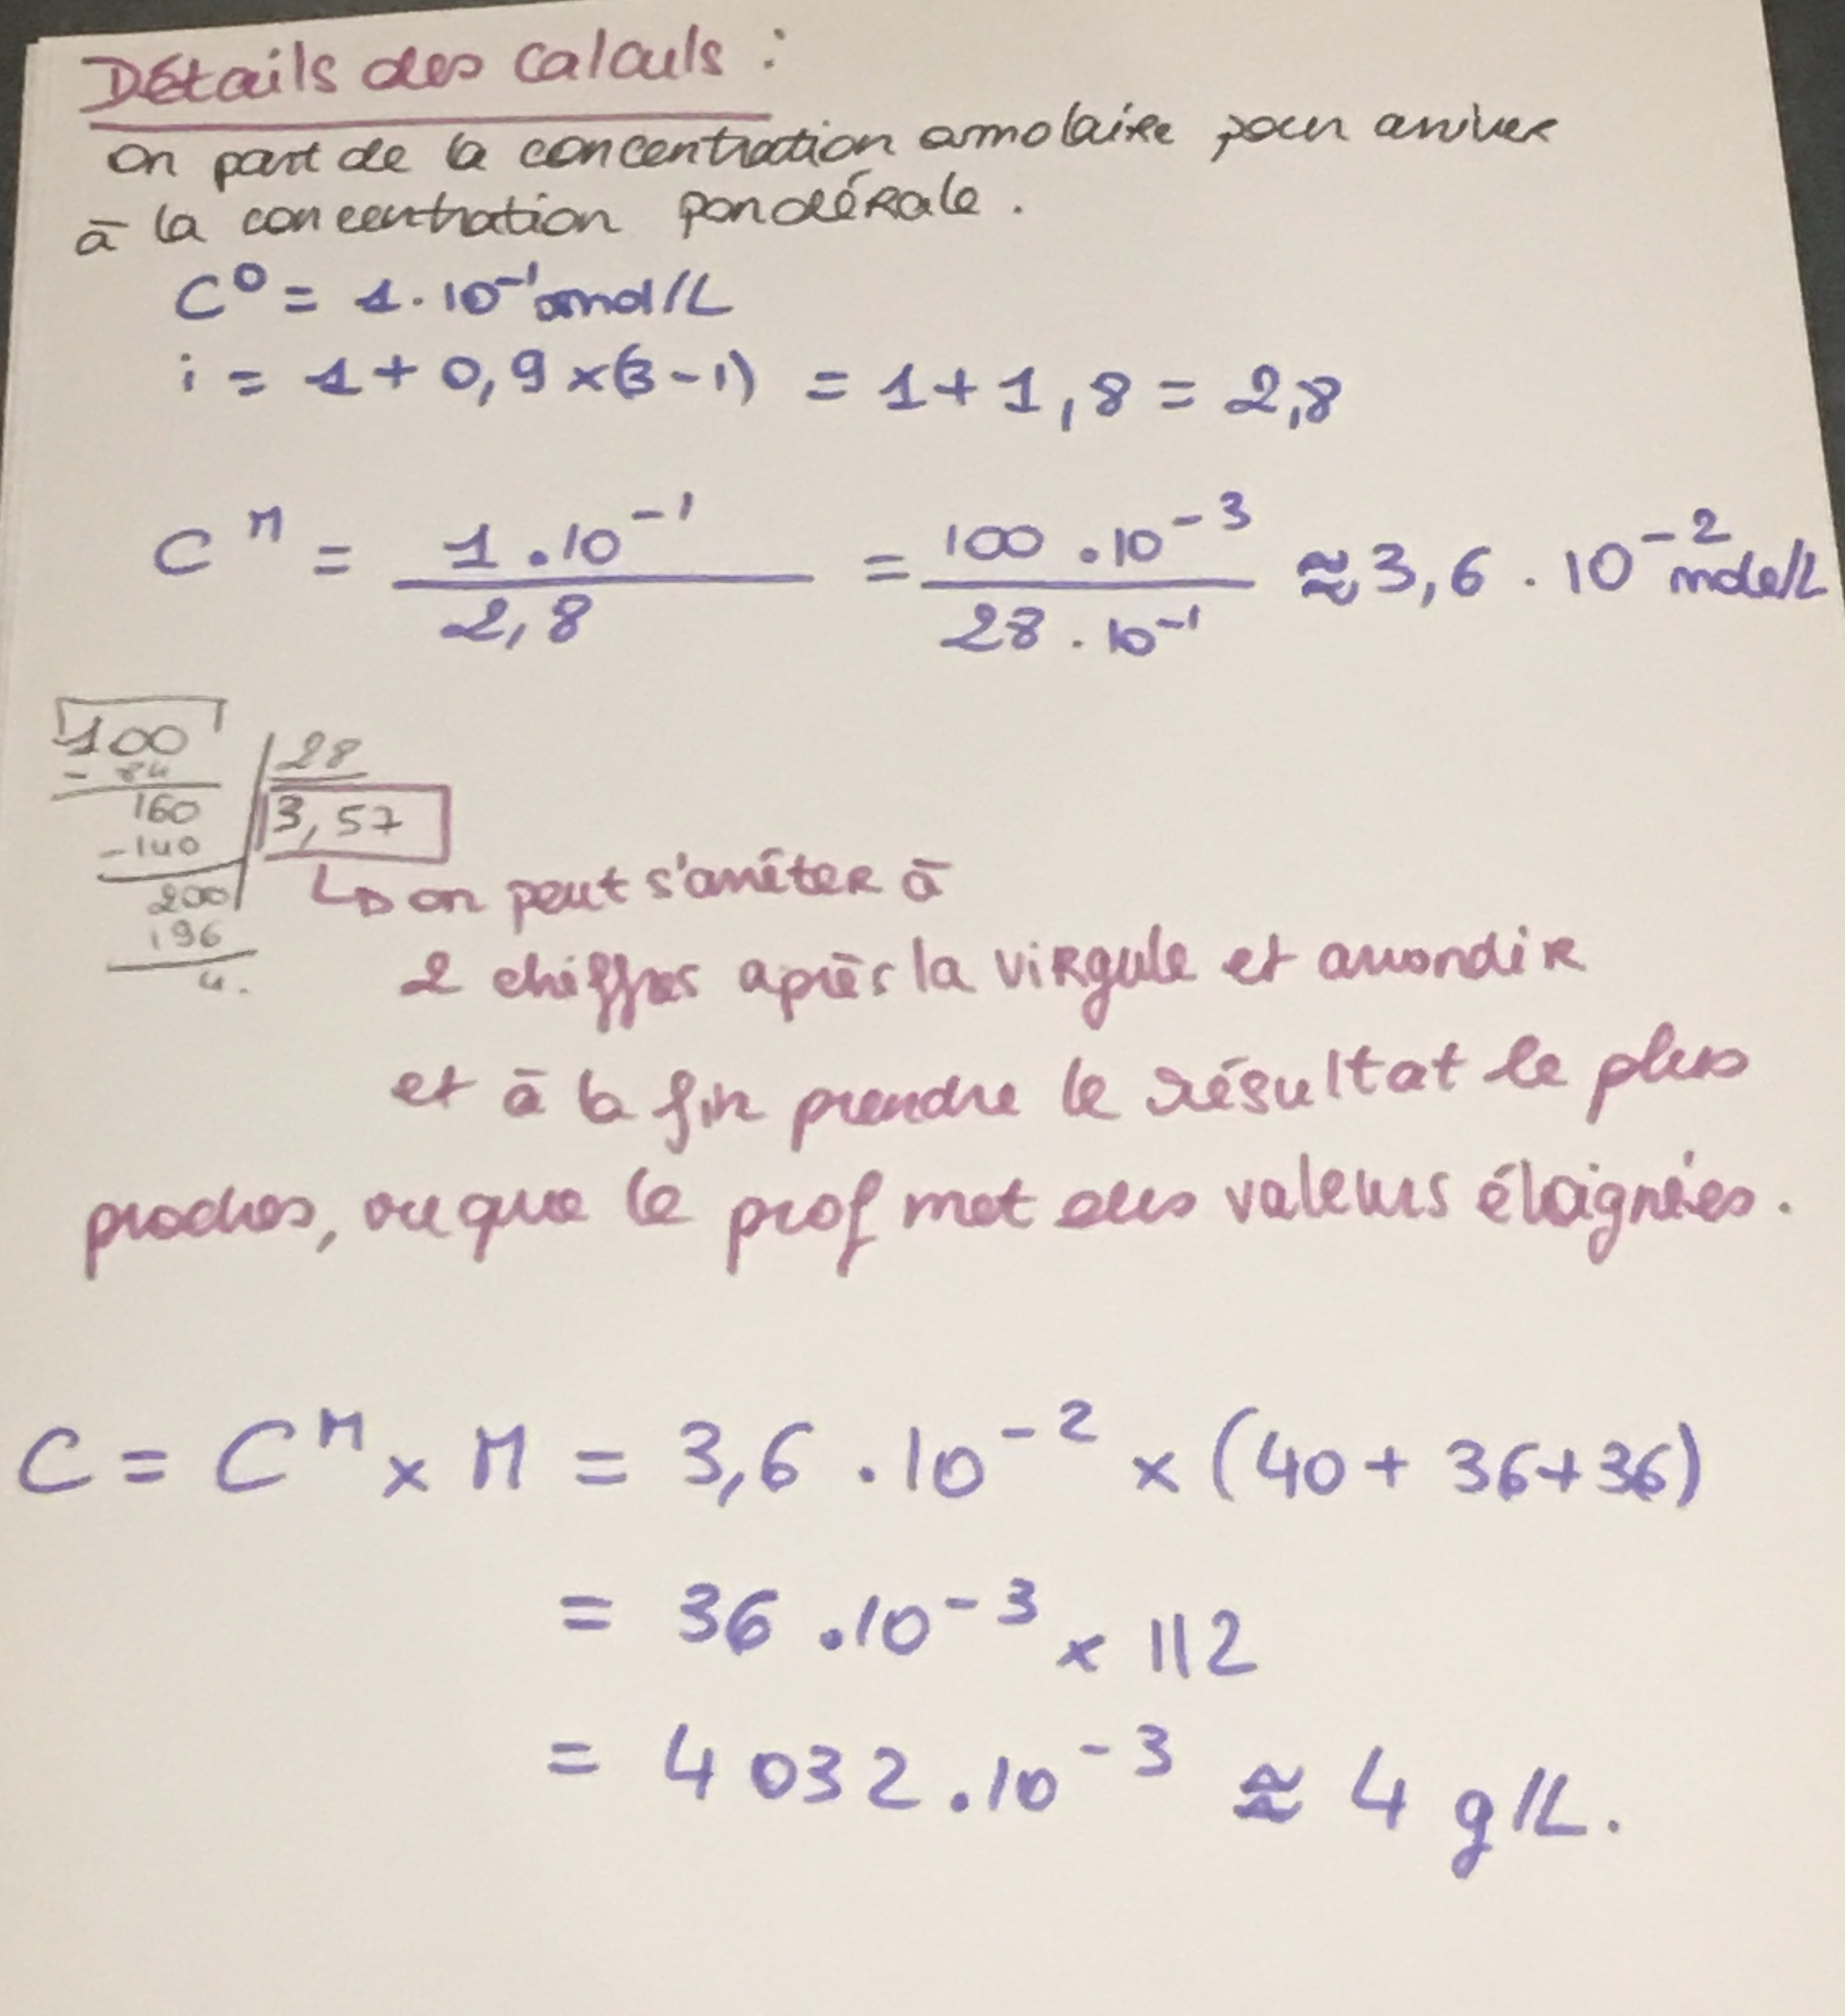 Détails des calculs :
on part de la concentration osmolaire pour arriver
à la concentration pondérale.
C° = 1.10⁻¹ osmol/L
i = 1 + 0,9 x (3-1) = 1 + 1,8 = 2,8
Cᴹ = 1.10⁻¹ / 2,8 = 100.10⁻³ / 28.10⁻¹ ≈ 3,6.10⁻² mole/L
100 | 28
- 84
160 | 3,57
-140
200
196
4.
↳ on peut s'arrêter à
2 chiffres après la virgule et arrondir
et à la fin prendre le résultat le plus
proches, vu que le prof met des valeurs éloignées.
C = Cᴹ x M = 3,6.10⁻² x (40 + 36 + 36)
= 36.10⁻³ x 112
= 4 032.10⁻³ ≈ 4 g/L.